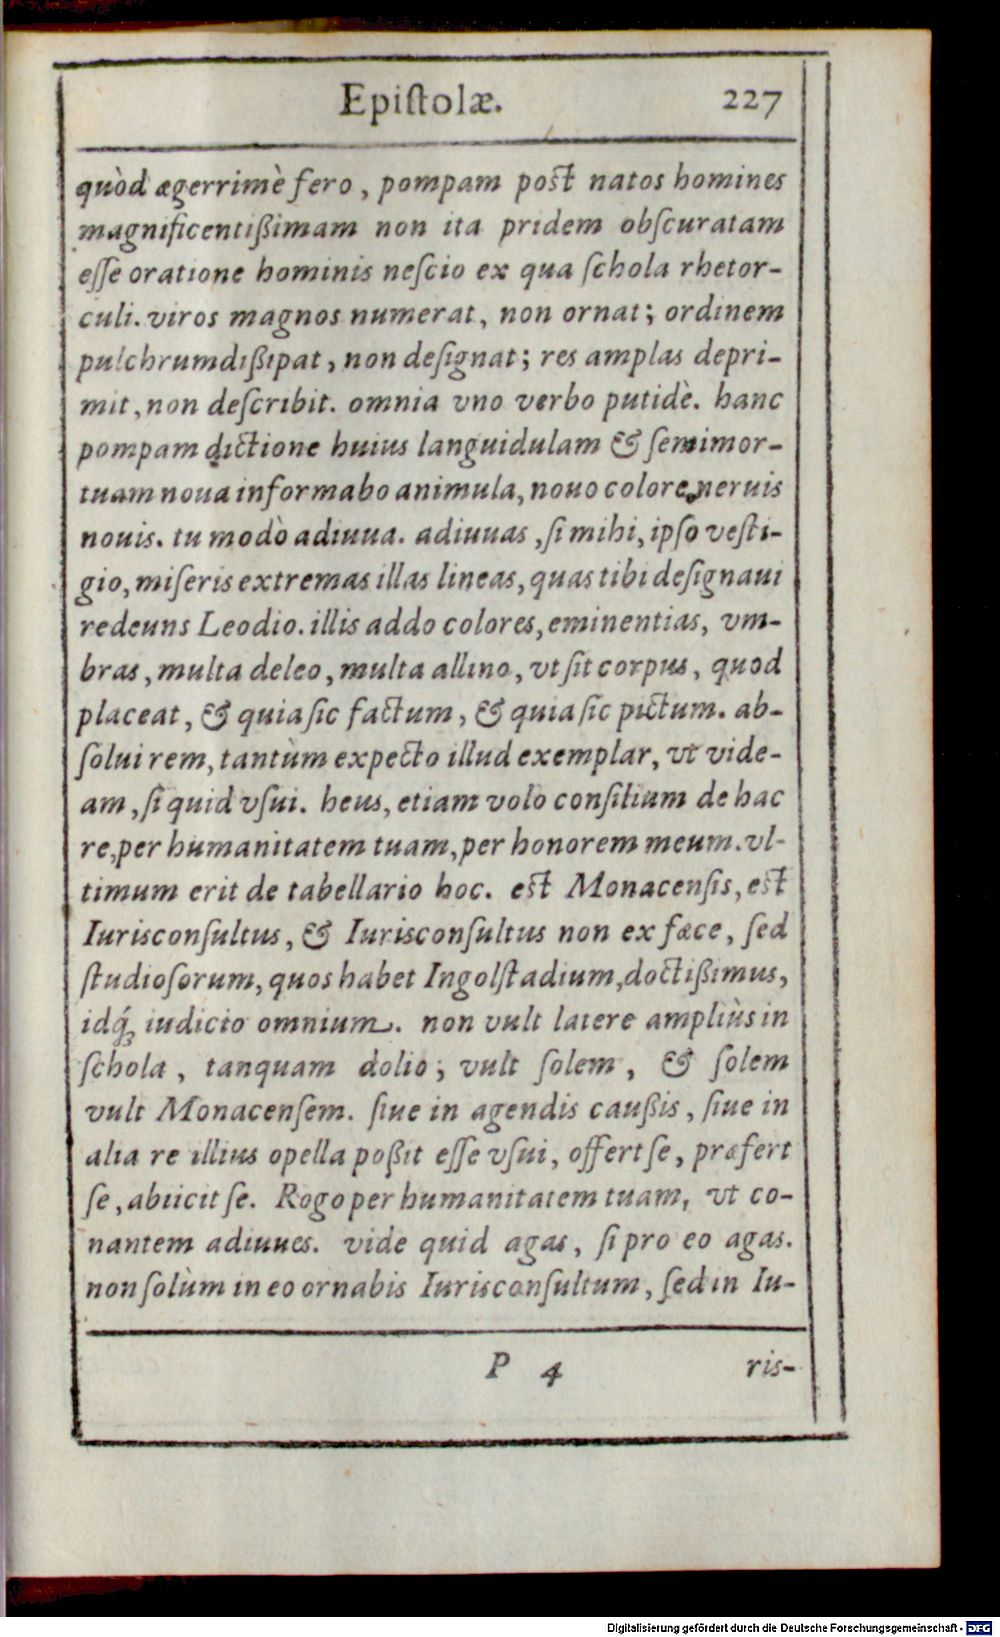 Epiſtolæ. 227
quòd ægerrimè fero, pompam poſt natos homines
magnificentißimam non ita pridem obſcuratam
eſſe oratione hominis neſcio ex qua ſchola rhetor-
culi. viros magnos numerat, non ornat; ordinem
pulchrumdißipat, non deſignat; res amplas depri-
mit, non deſcribit. omnia vno verbo putidè. hanc
pompam dictione huius languidulam & ſemimor-
tuam noua informabo animula, nouo colore, neruis
nouis. tu modò adiuua. adiuuas, ſi mihi, ipſo veſti-
gio, miſeris extremas illas lineas, quas tibi deſignaui
rediens Leodio. illis addo colores, eminentias, vm-
bras, multa deleo, multa allino, vt ſit corpus, quod
placeat, & quia ſic factum, & quia ſic pictum. ab-
ſolui rem, tantùm expecto illud exemplar, vt vide-
am, ſi quid vſui. heus, etiam volo conſilium de hac
re, per humanitatem tuam, per honorem meum. vl-
timum erit de tabellario hoc. eſt Monacenſis, eſt
Iurisconſultus, & Iurisconſultus non ex fæce, ſed
ſtudioſorum, quos habet Ingolſtadium, doctißimus,
idq́; iudicio omnium. non vult latere ampliùs in
ſchola, tanquam dolio; vult ſolem, & ſolem
vult Monacenſem. ſiue in agendis caußis, ſiue in
alia re illius opella poßit eſſe vſui, offert ſe, præfert
ſe, abiicit ſe. Rogo per humanitatem tuam, vt co-
nantem adiuues. vide quid agas, ſi pro eo agas.
non ſolùm in eo ornabis Iurisconſultum, ſed in Iu-
P 4 ris-
Digitalisierung gefördert durch die Deutsche Forschungsgemeinschaft - DFG